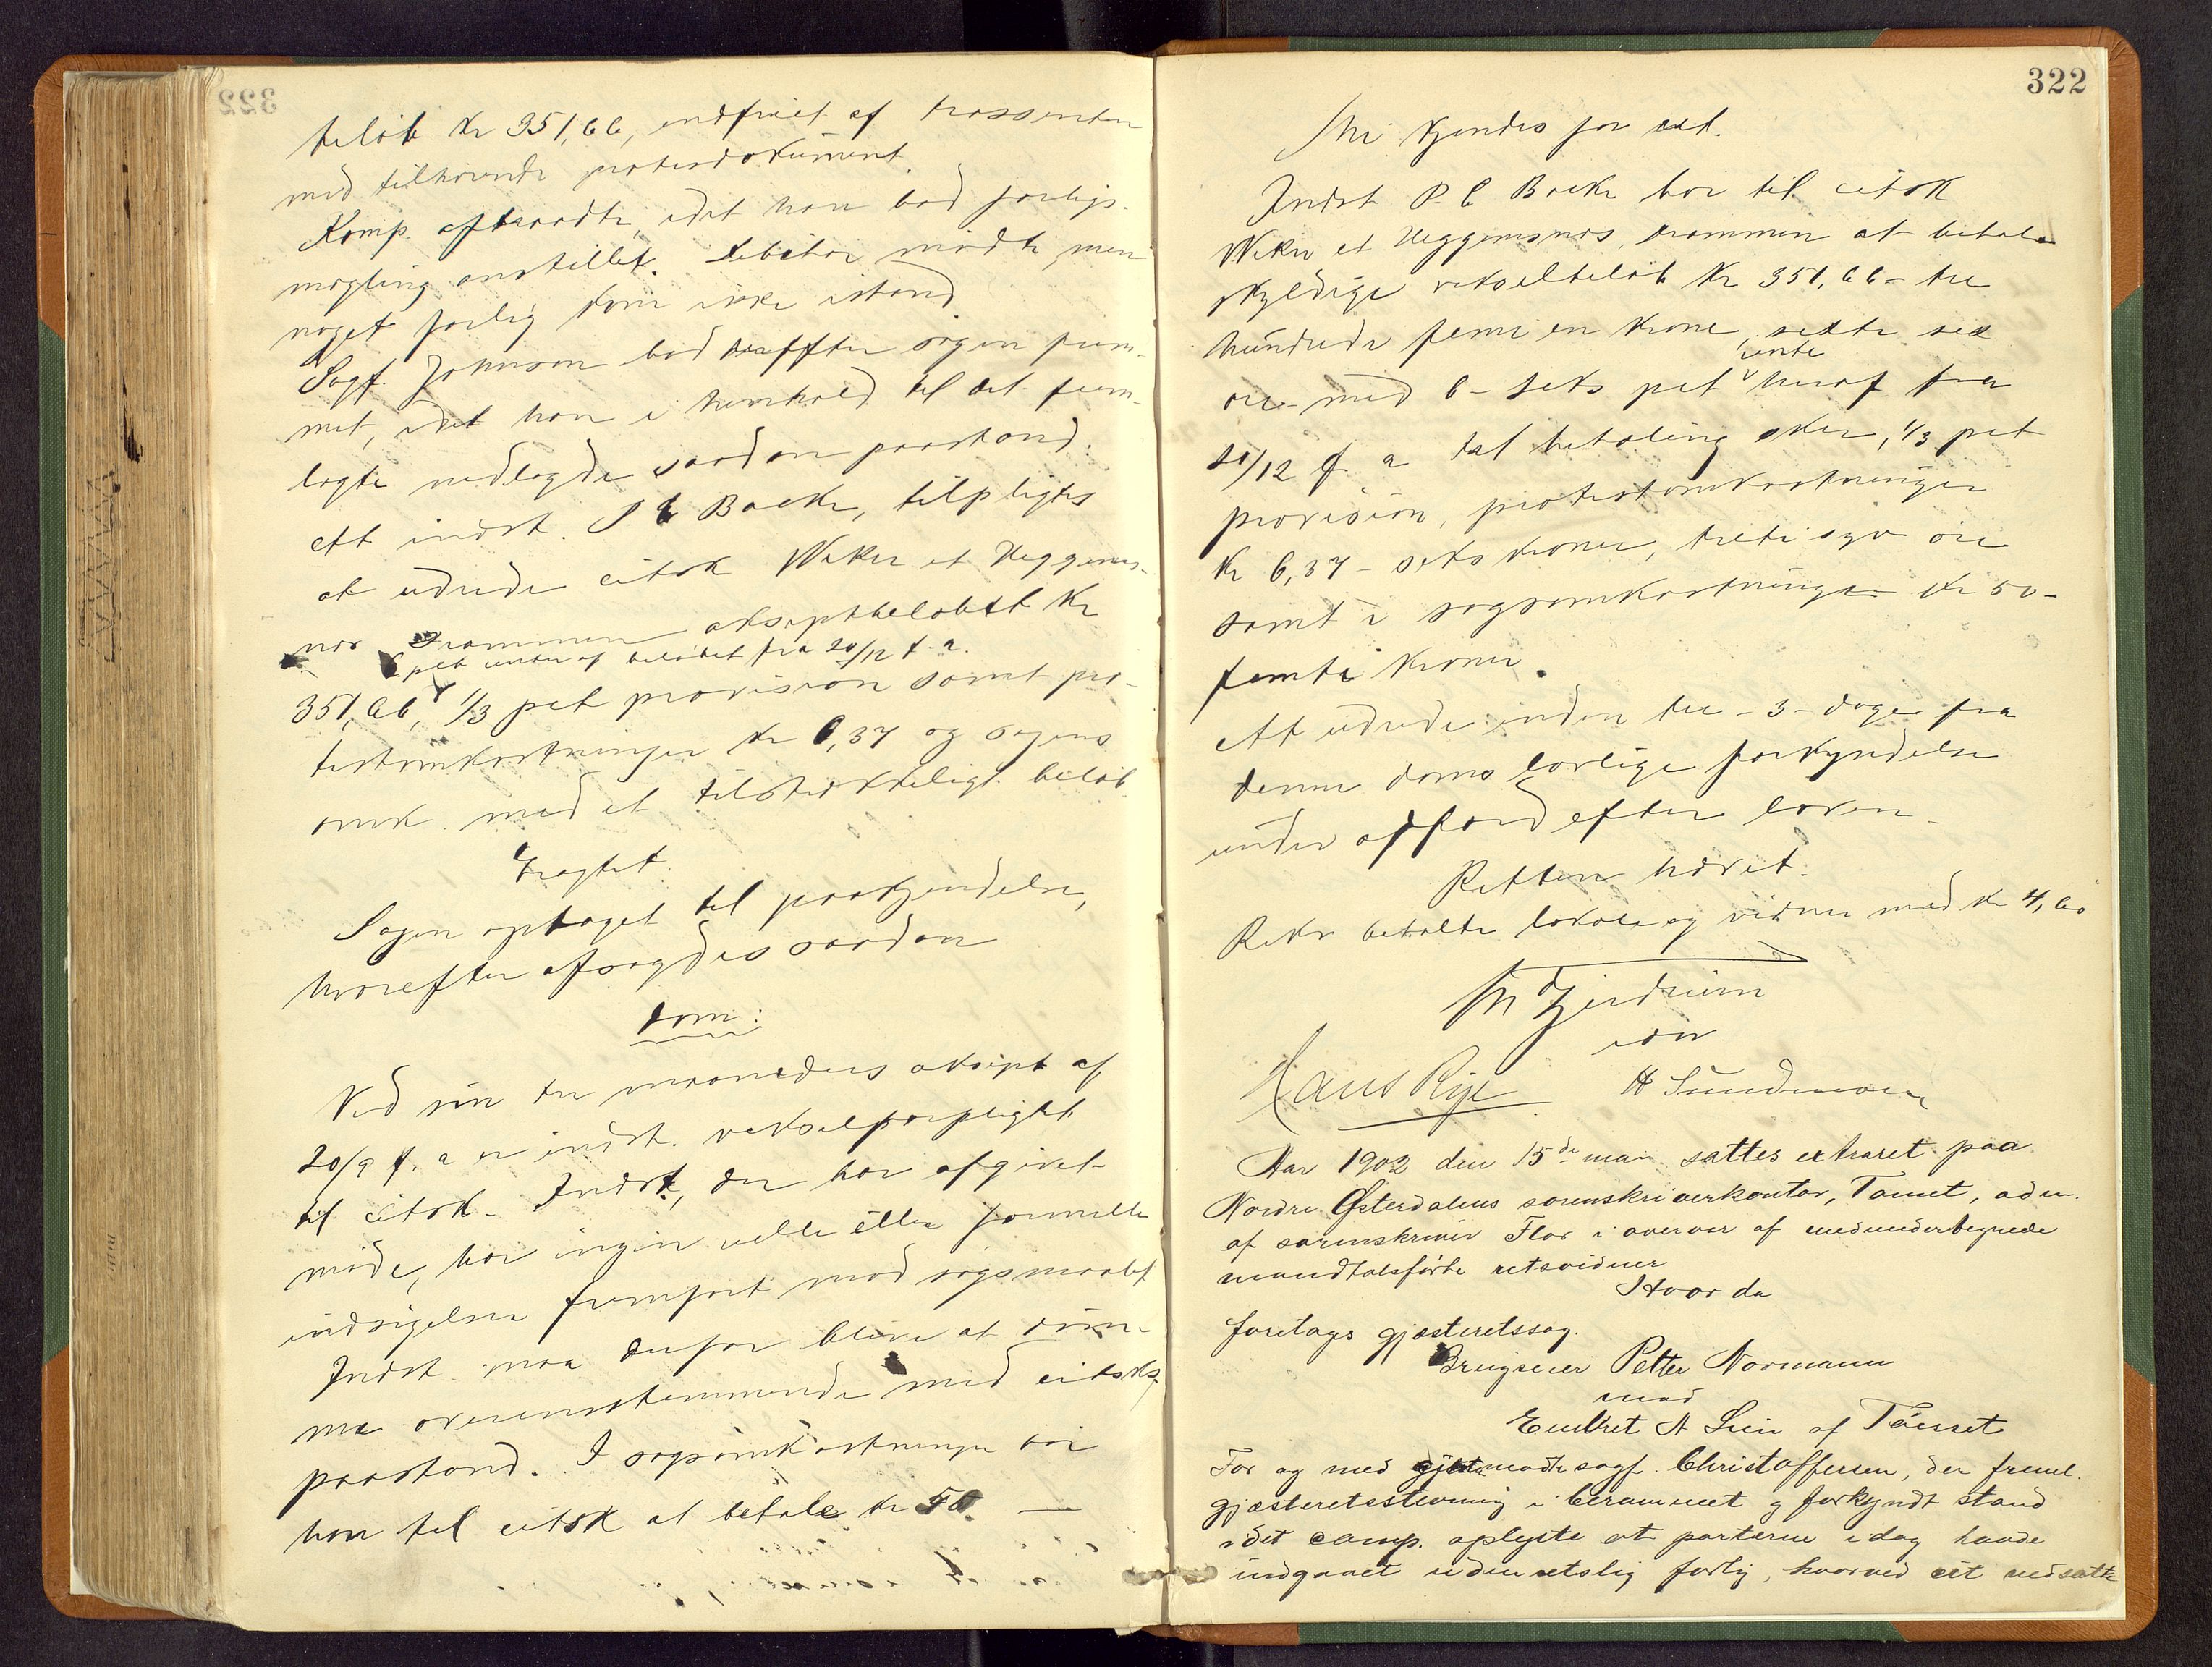 beløb Kr 351,66, indfriet af trassenten
med tilhørende protestdokument
Komp. æskede, idet han bad forligs-
mægling anstillet. Debitor mødte, men
noget forlig kom ikke istand
Sagf. Johnson bad derefter sagen frem-
met, idet han i henhold til det frem-
lagte nedlagde saadan paastand:
At indst. P C Backe, tilpligtes
at udrede citsk Weker et Heggems-
nos Drammen akseptbeløbet Kr
6 pct renter af beløbet fra 20/12 f. a.
351,66, 1/3 pct provision samt pro-
testomkostninger Kr 6,37 og sagens
omk. med et tilstrækkeligt beløb
Eragtet:
Sagen optaget til paakjendelse,
hvorefter afsagdes saadan
dom:
Ved sin tre maaneders aksept af
20/9 f. a er indst. vekselforpligtet
til citsk. Indst, der har afgivet
møde, har ingen reelle eller formelle
indsigelser fremført mod søgsmaalet
Indst. maa derfor blive at døm-
me overensstemmende med citsks
paastand. I sagsomkostninger bør
han til citsk at betale Kr 50. —
322
Thi kjendes for ret.
Indst P. C Backe bør til citsk
Weker et Heggemsnos, Drammen at betale
skyldige vekselbeløb Kr 351,66 - tre
hundrede femti en krone, seksti sex
øre - med 6 - seks pct heraf fra
rente
20/12 f. a til betaling sker, 1/3 pct
provision, protestomkostninger
Kr 6,37 - seks kroner, treti syv øre
samt i sagsomkostninger Kr 50 -
femti kroner.
At udrede inden tre - 3 - dage fra
denne doms lovlige forkyndelse
under adfærd efter loven -
Retten hævet.
Rekv betalte lokale og vidner med Kr 4,60
Gjerdrum
cst
Hans Rye H Sundmoen
Aar 1902 den 15de mai sattes extraret paa
Nordre Østerdalens sorenskriverkontor, Tønset, adm.
af sorenskriver Flor i overvær af medundertegnede
mandtalsførte retsvidner
Hvor da
foretages gjæsteretssag.
Brugseier Petter Normann
mod
Embret A Lien af Tønset
For og med mødte sagf. Christoffersen, der freml.
gjæsteretsstevning i berammet og forkyndt stand
idet comp. oplyste at parterne idag havde
indgaaet udenretslig forlig, hvorved cit nedsatte